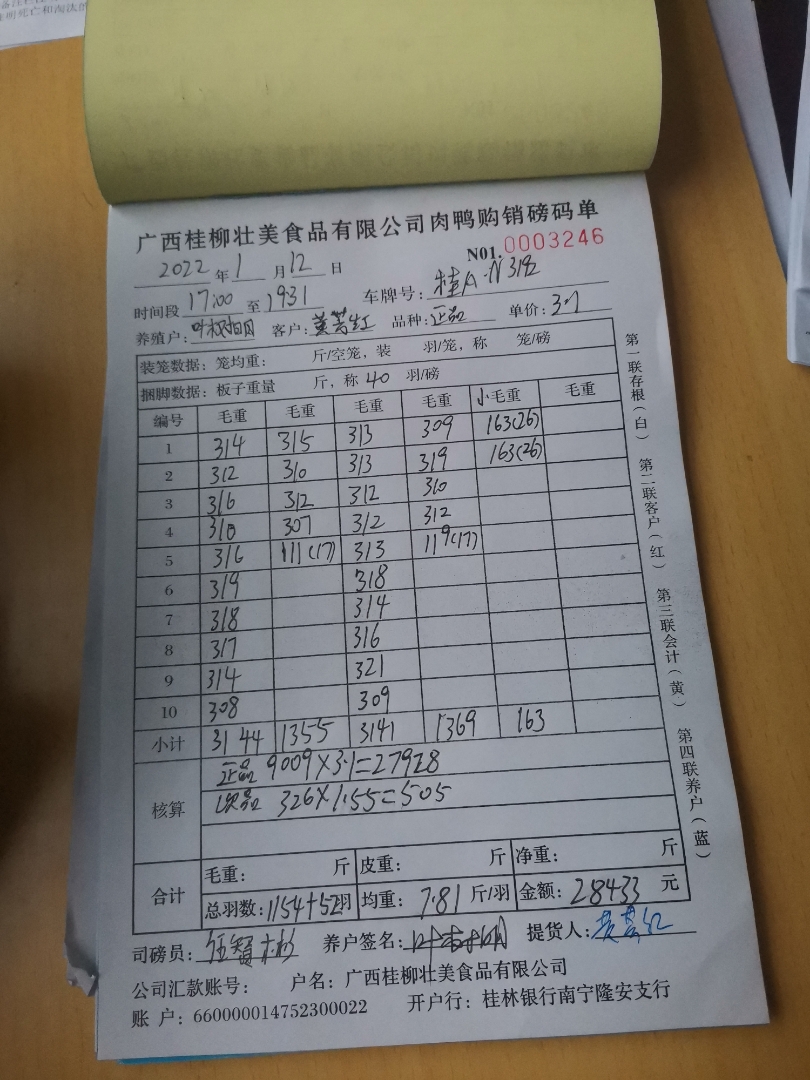 广西桂柳壮美食品有限公司肉鸭购销磅码单
N01. 0003246
2022年1月12日
时间段 17:00 至 1931 车牌号:
养殖户: 客户: 黄芳红 品种: 正品 单价: 3.1
装笼数据: 笼均重: 斤/空笼, 装 羽/笼, 称 笼/磅
捆脚数据: 板子重量 斤, 称 40 羽/磅
编号 毛重 毛重 毛重 毛重 小毛重 毛重
1 314 315 313 309 163(26)
2 312 310 313 319 163(26)
3 316 312 312 310
4 310 307 312 312
5 316 111(17) 313 119(17)
6 319 318
7 318 314
8 317 316
9 314 321
10 308 309
小计 3144 1355 3141 1369 163
核算
正品 9009×3.1=27928
次品 326×1.55=505
合计
毛重: 斤 皮重: 斤 净重: 斤
总羽数: 1154+52羽 均重: 7.81 斤/羽 金额: 28433 元
司磅员: 养户签名: 提货人:
公司汇款账号: 户名: 广西桂柳壮美食品有限公司
账 户: 660000014752300022 开户行: 桂林银行南宁隆安支行
第一联存根(白) 第二联客户(红) 第三联会计(黄) 第四联养户(蓝)